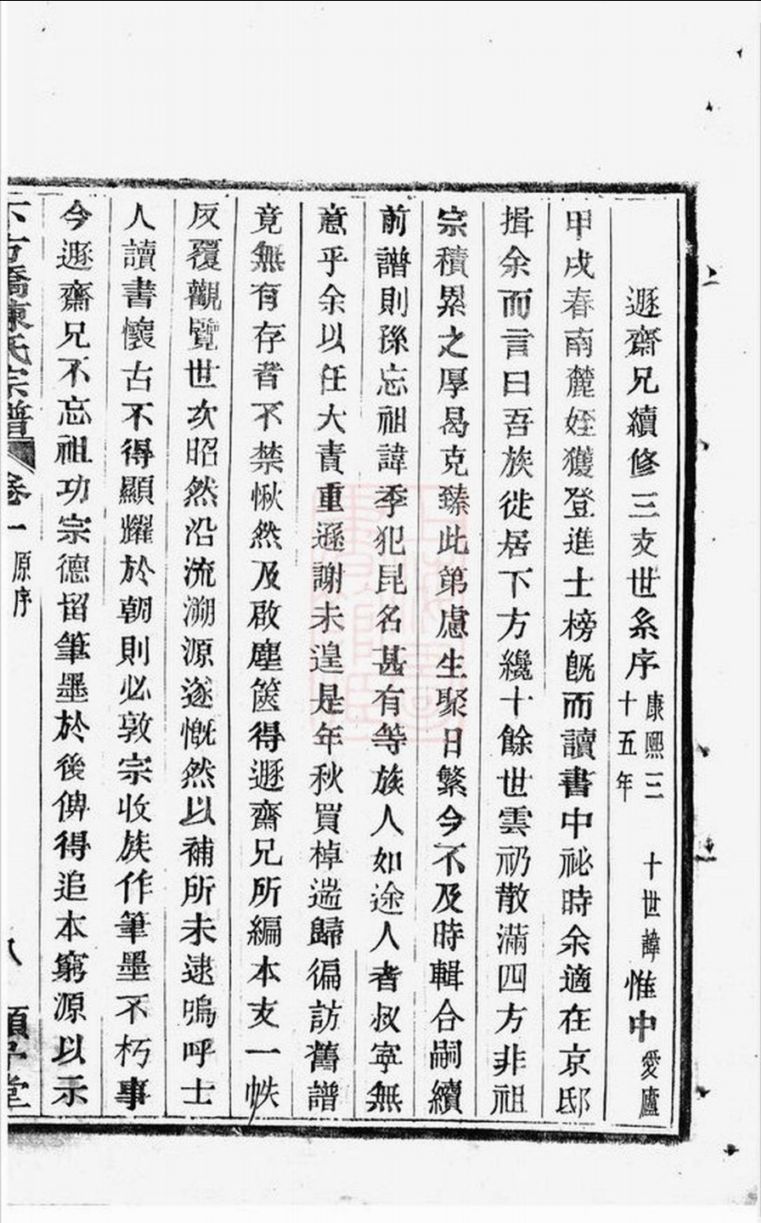 遯齋兄續修三支世系序 康熙三十五年 十世諱惟中愛廬
甲戌春南麓姪獲登進士榜旣而讀書中祕時余適在京邸
揖余而言曰吾族徙居下方纔十餘世雲礽散滿四方非祖
宗積累之厚曷克臻此第慮生聚日繁今不及時輯合嗣續
前譜則孫忘祖諱季犯昆名甚有等族人如途人者叔寜無
意乎余以任大責重遜謝未遑是年秋買棹遄歸徧訪舊譜
竟無有存者不禁愀然及啟塵篋得遯齋兄所編本支一帙
反覆觀覽世次昭然沿流溯源遂慨然以補所未逮嗚呼士
人讀書懷古不得顯耀於朝則必敦宗收族作筆墨不朽事
今遯齋兄不忘祖功宗德留筆墨於後俾得追本窮源以示
下方橋陳氏宗譜 卷一 原序 八